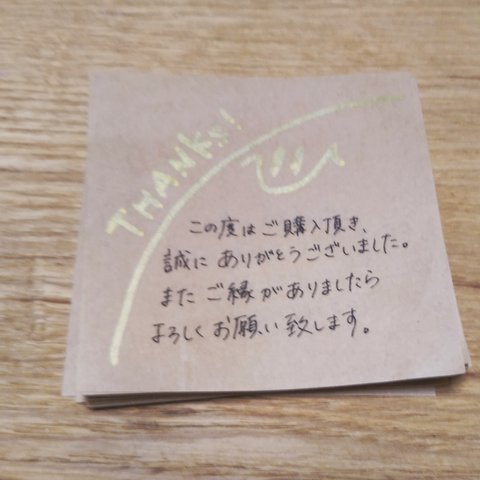 THANKS!
この度はご購入頂き、
誠にありがとうございました。
またご縁がありましたら
よろしくお願い致します。